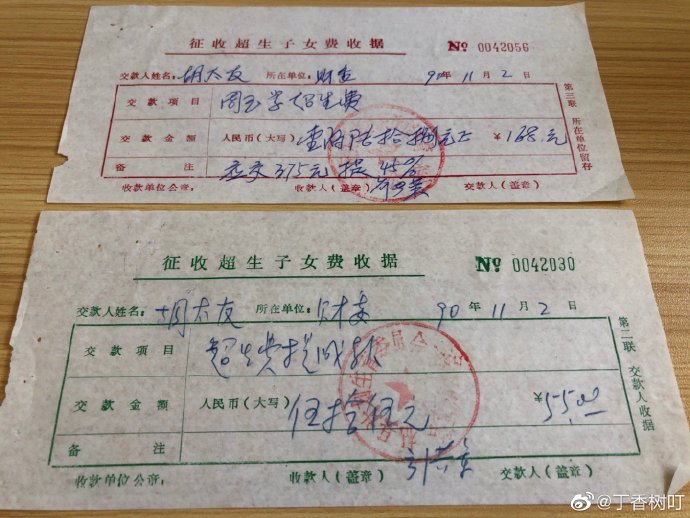 征收超生子女费收据 № 0042056
交款人姓名：胡太友 所在单位：财 90年11月2日
交款项目 超生费
交款金额 人民币（大写） 壹佰陆拾捌元正 ￥168.元
备注 375元 提45%
收款单位公章： 收款人（盖章） 交款人（盖章）
第三联 所在单位留存
征收超生子女费收据 № 0042030
交款人姓名：胡太友 所在单位：财 90年11月2日
交款项目 超生费提成款
交款金额 人民币（大写） 伍拾伍元 ￥55.00
备注
收款单位公章： 收款人（盖章） 交款人（盖章）
第二联 交款人收据
@丁香树叮